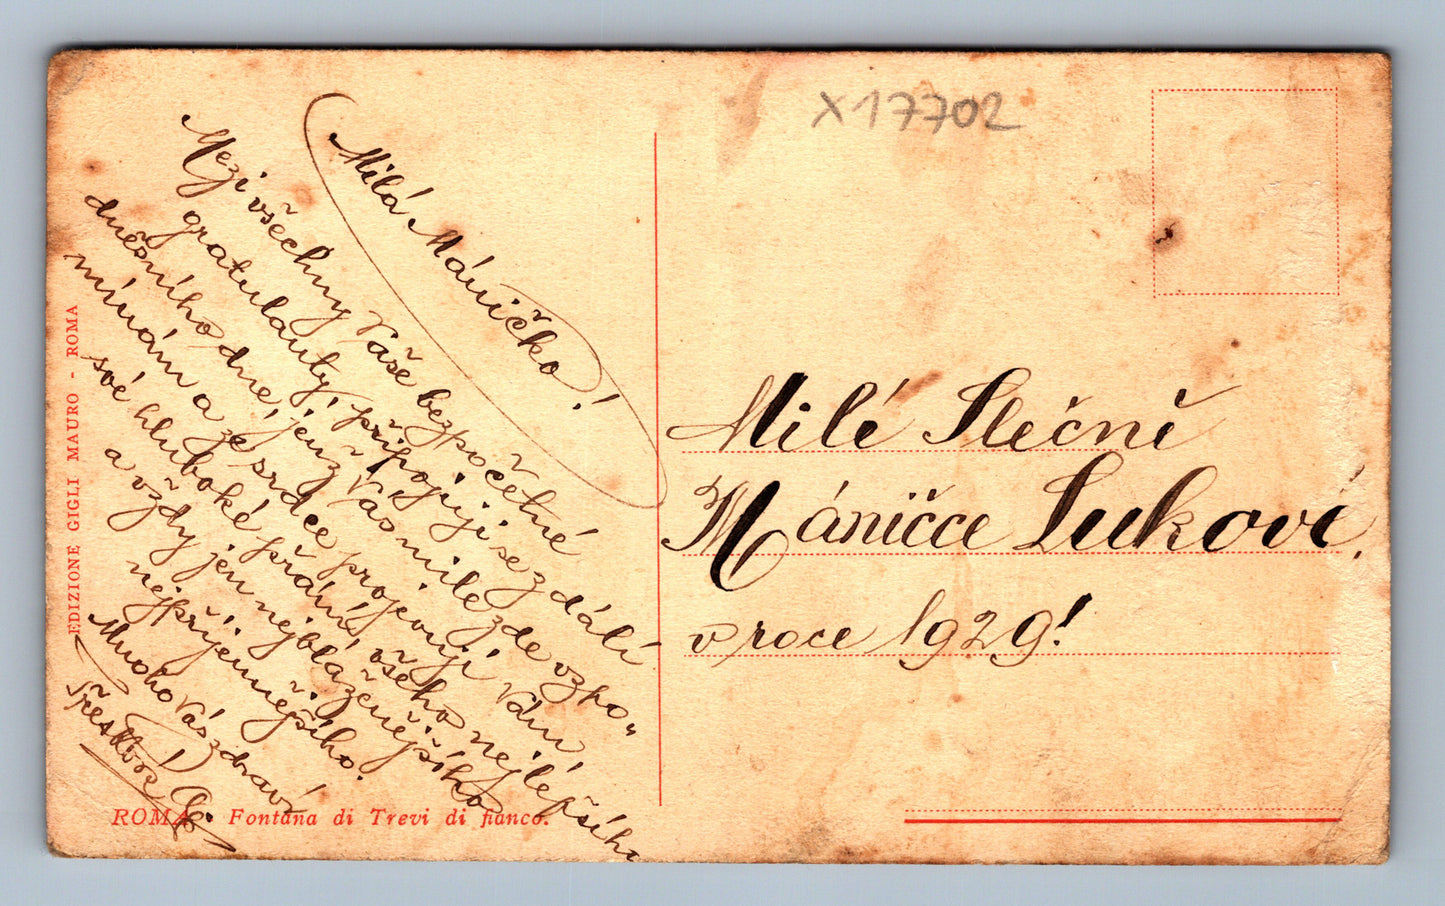 X17702
Milá Máničko!
Mezi všechny Vaše bezpočetné
gratulanty, připojuji se z dálí
dnešního dne, jenž Vás mile zde vzpo„
mínám a ze srdce projevuji Vám
své hluboké přání, všeho nejlepšího
a vždy jen nejblaženějšího
nejpříjemnějšího.
Mnoho Vás zdraví
Milé Slečně
Máničce Lukovi,
v roce 1929!
EDIZIONE GIGLI MAURO - ROMA
ROMA - Fontana di Trevi di fianco.